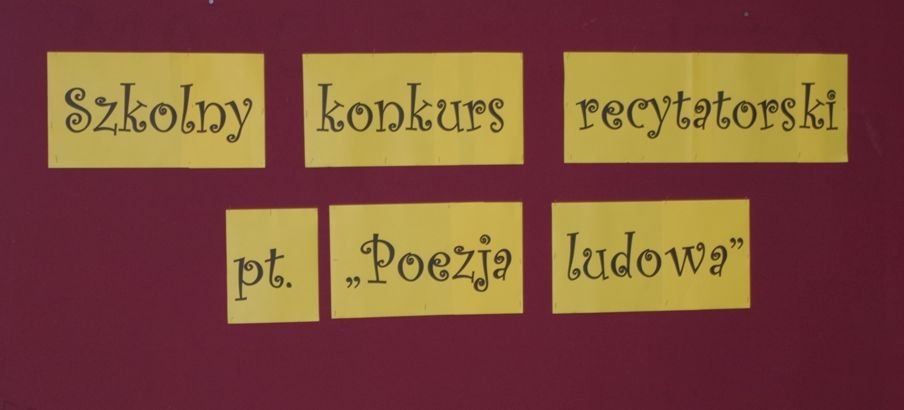 Szkolny konkurs recytatorski
pt. „Poezja ludowa”